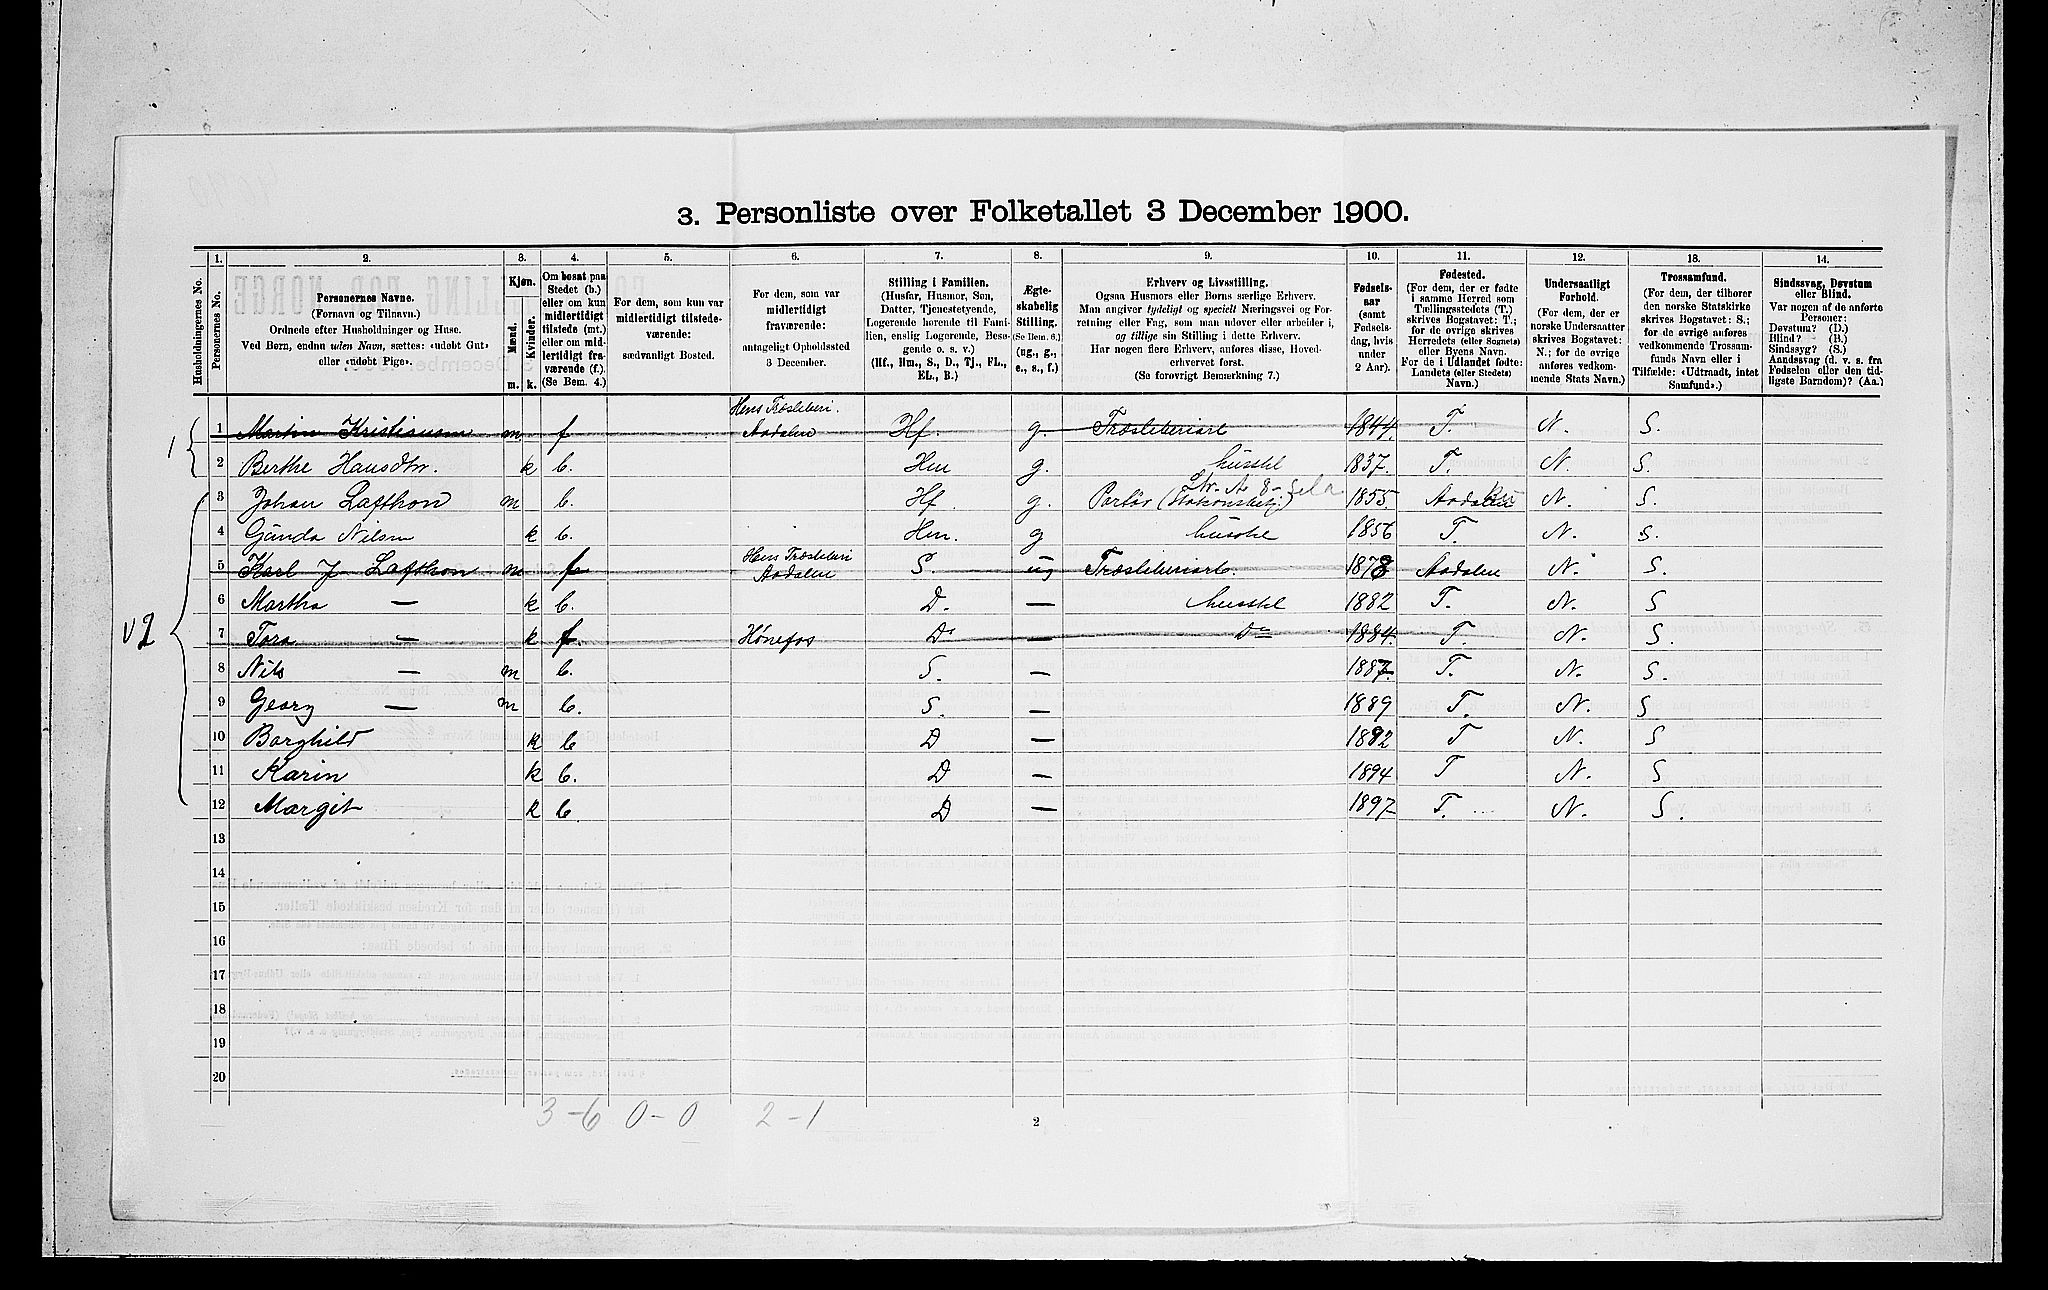 3. Personliste over Folketallet 3 December 1900.
Husholdningernes No.
1.
Personernes No.
2.
Personernes Navne.
(Fornavn og Tilnavn.)
Ordnede efter Husholdninger og Huse.
Ved Børn, endnu uien Navn, sættes: «udøbt Gut»
eller «udøbt Pige».
3.
Kjøn.
Mænd.
Kvinder.
m.
k.
4.
Om bosat paa
Stedet (b.)
eller om kun
midlertidigt
tilstede (mt.)
eller om mid-
lertidigt fra-
værende (f.).
(Se Bem. 4.)
5.
For dem, som kun var
midlertidigt tilstede-
værende:
sædvanligt Bosted.
6.
For dem, som var
midlertidigt
fraværende:
antageligt Opholdssted
3 December.
7.
Stilling i Familien.
(Husfar, Husmor, Søn,
Datter, Tjenestetyende,
Logerende hørende til Fami-
lien, enslig Logerende, Besø-
gende o. s. v.)
(Hf., Hm., S., D., Tj., FL.,
EL., B.)
8.
Ægte-
skabelig
Stilling.
(Se Bem. 6.)
(ug., g.,
e., s., f.)
9.
Erhverv og Livsstilling.
Ogsaa Husmors eller Børns særlige Erhverv.
Man angiver tydeligt og specielt Næringsvei og For-
retning eller Fag, som man udøver eller arbeider i,
og tillige sin Stilling i dette Erhverv.
Har nogen flere Erhverv, anføres disse, Hoved-
erhvervet først.
(Se forøvrigt Bemerkning 7.)
10.
Fødsels-
aar
(samt
Fødsels-
dag, hvis
under
2 Aar).
11.
Fødested.
(For dem, der er fødte
i samme Herred som
Tællingsstedets (T.)
skrives Bogstavet: T.;
for de øvrige skrives
Herredets (eller Sognets)
eller Byens Navn.
For de i Udlandet fødte:
Landets (eller Stedets)
Navn.)
12.
Undersaatligt
Forhold.
(For dem, der er
norske Undersaatter
skrives Bogstavet:
N.; for de øvrige
anføres vedkom-
mende Stats Navn.)
13.
Trossamfund.
(For dem, der tilhører
den norske Statskirke
skrives Bogstavet: S.;
for de øvrige anføres
vedkommende Trossam-
funds Navn eller i
Tilfælde: «Udtraadt, intet
Samfund».)
14.
Sindssvag, Døvstum
eller Blind.
Var nogen af de anførte
Personer:
Døvstum? (D.)
Blind? (B.)
Sindssyg? (S.)
Aandssvag (d. v. s. fra
Fødselen eller den tid-
ligste Barndom)? (Aa.)
1 1 Martin Kristiansen m f Hens Træsliberi. Aadalen Hf. g. Træsliberiarb 1844. T. N. S.
2 Berthe Hansdtr. k b. Hm g. husstel 1837. T. N. S.
v2 3 Johan Lafthon m b. Hf g. 1855. Aadalen N. S.
4 Gunda Nilsen k b. Hm. g husstel 1856 T. N. S.
5 Karl J Lafthon m f Hens Træsliberi Aadalen S. ug Træsliberiarb. 1878 Aadalen N. S.
6 Martha — k b. D. — husstel 1882 T. N. S
7 Tora — k f. Hønefos D. — Do 1884. T. N. S.
8 Nils — m b. S. — 1887. T. N. S.
9 Georg — m b. S. — 1889 T. N. S
10 Borghild k b D — 1892 T N. S
11 Karin k b. D — 1894 T N. S
12 Margit k b. D — 1897 T. N. S.
13
14
15
16
17
18
19
20
3-6 0-0 2-1
2